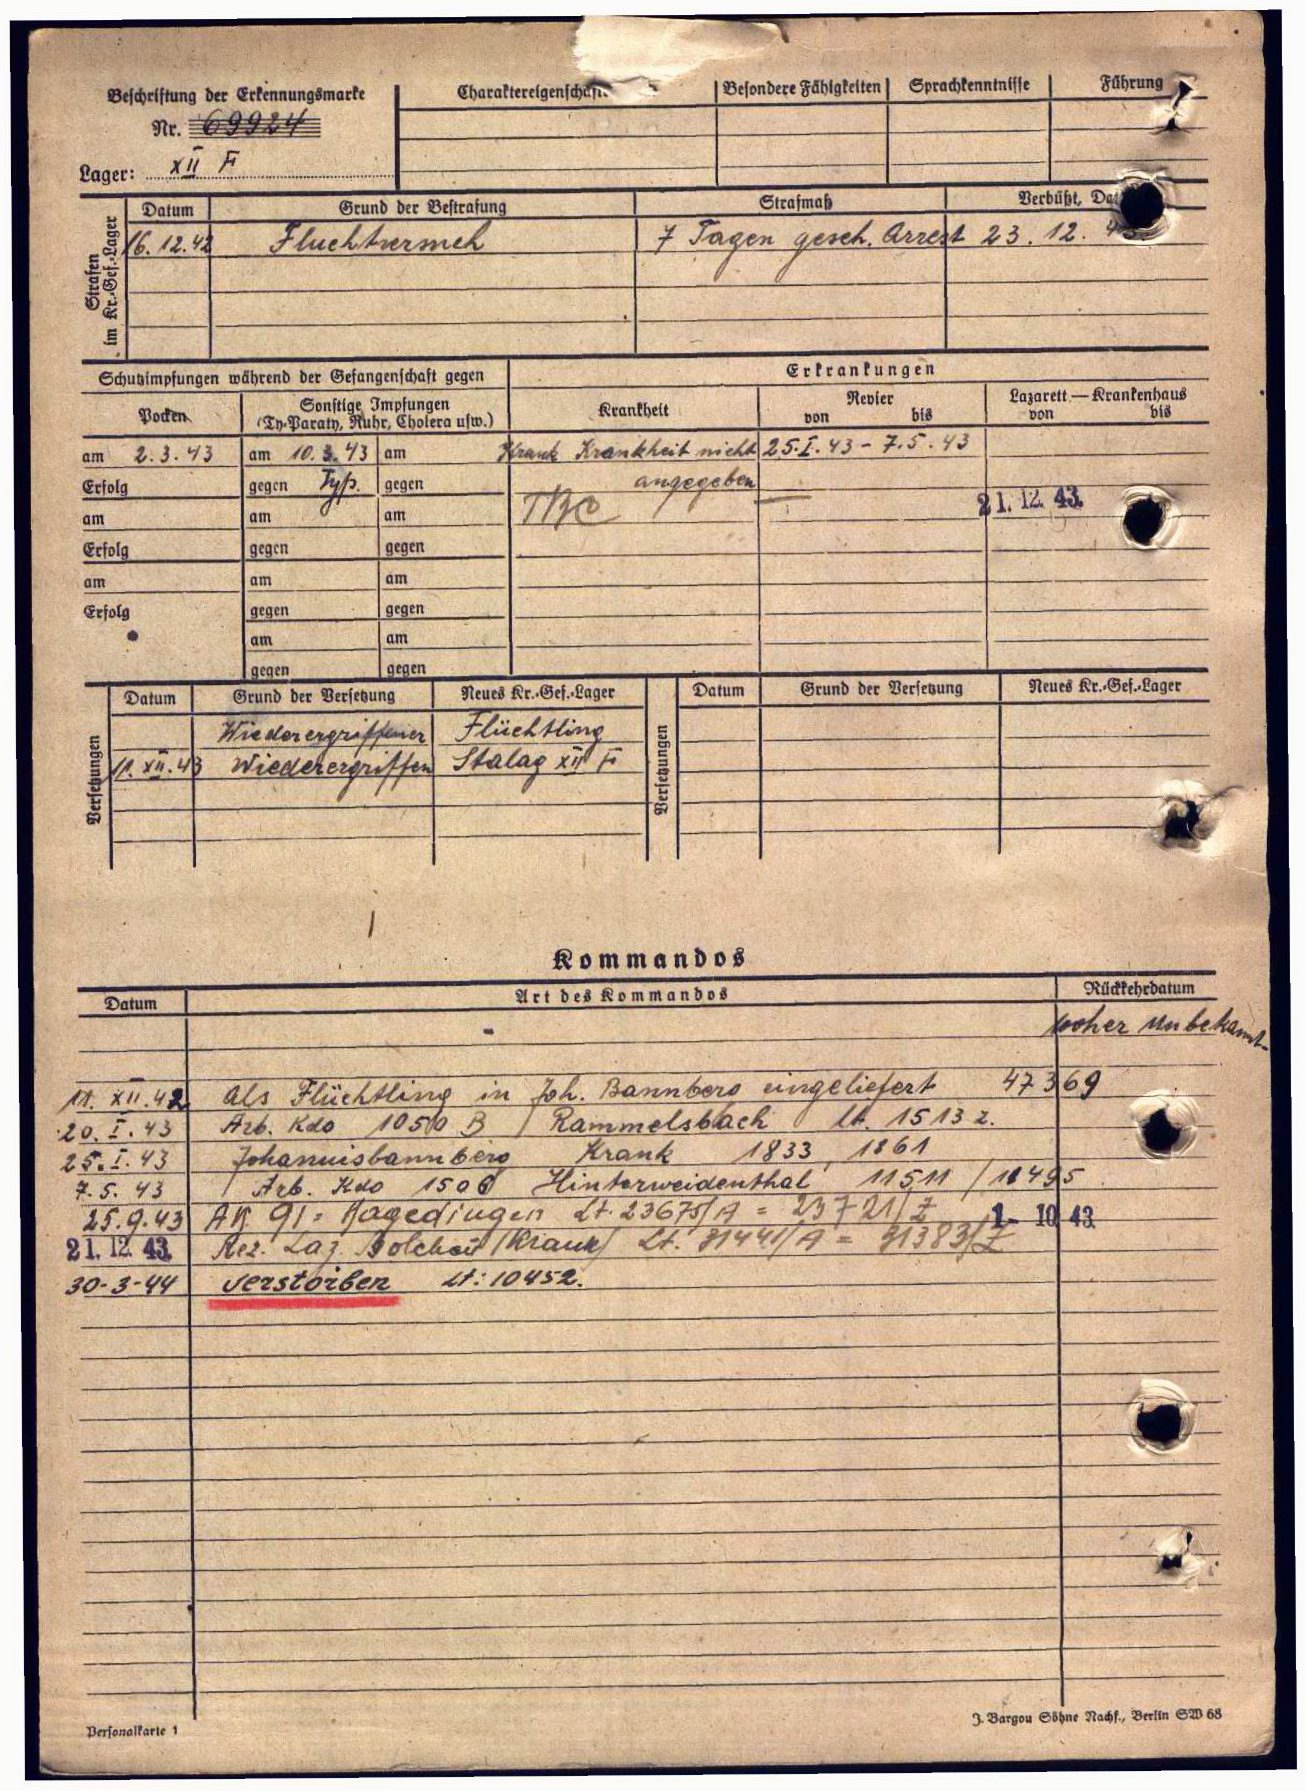 Beschriftung der Erkennungsmarke
Nr. 69924
Lager: XII F
Charaktereigenschaft
Besondere Fähigkeiten
Sprachkenntnisse
Führung
Strafen im Kr.-Gef.-Lager
Datum Grund der Bestrafung Strafmaß Verbüßt, Dat
16.12.42 Fluchtversuch 7 Tagen gesch. Arrest 23.12.4
Schutzimpfungen während der Gefangenschaft gegen
Erkrankungen
Pocken
Sonstige Impfungen
(Ty-Paraty, Ruhr, Cholera usw.)
Krankheit
Revier
von bis
Lazarett — Krankenhaus
von bis
am 2.3.43 am 10.3.43 am Krank Krankheit nicht 25.I.43 - 7.5.43
Erfolg gegen Typ. gegen angegeben
am am am TBC 21. 12. 43.
Erfolg gegen gegen
am am am
Erfolg gegen gegen
am am
gegen gegen
Versetzungen
Datum Grund der Versetzung Neues Kr.-Gef.-Lager
Versetzungen
Datum Grund der Versetzung Neues Kr.-Gef.-Lager
Wiederergriffener Flüchtling
11.XII.43 Wiederergriffen Stalag XII F
Kommandos
Datum Art des Kommandos Rückkehrdatum
woher Unbekannt-
11. XII.42 als Flüchtling in Joh. Bannberg eingeliefert 47369
20. I. 43 Arb. Kdo 1050 B / Rammelsbach lt. 1513 z.
25. I. 43 Johannisbannberg Krank 1833, 1861
7.5. 43 Arb. Kdo 1506 Hinterweidenthal 11511 / 11495
25.9.43 AK 91 = Hagedingen Lt. 23675/A = 23721/Z 1- 10 43.
21. 12. 43. Res. Laz. Bolchen /Krank/ Lt. 31441/A = 31383/Z
30-3-44 verstorben Lt: 10452.
Personalkarte 1
J. Bargou Söhne Nachf., Berlin SW 68